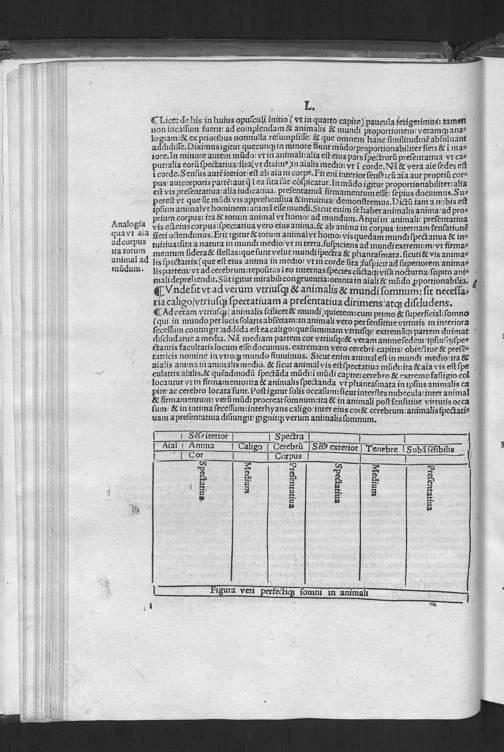 L.
¶ Licet de his: in huius opusculi initio (vt in quarto capite) paucula tetigerimus: tamen
non incassum fuerit: ad complendam & animalis & mundi proportionem: veramq; ana⸗
logiam: & ex prioribus nonnulla resumpsisse: & que omnem hanc similitudinē absoluant
addidisse. Diximus igitur quecunq; in minore fiunt mūdo: proportionabiliter fieri & ī ma⸗
iore. In minore autem mūdo: vt in animali: alia est eius pars spectrorū presentatiua: vt ca⸗
put: alia eorū spectatiua sita (vt diximus) in aialis medio: vt ī corde. Nā & vera aīe sedes est
ī corde. Sensus autē īterior: est ab aia in
pus: autcorporis parte: aut
est vis presentatiua: alia iudicatiua. presentatiuā firmamentum esse: sepius docuimus. Su⸗
perest vt que sit mūdi vis apprehensiua & intuitiua: demonstremus. Dictū iam a nobis est
ipsum animal vt hominem: animā esse mundi. Sicut enim se habet animalis anima: ad pro⸗
prium corpus: ita & totum animal vt homo: ad mundum. Atqui in animali: presentatiua
vis est eius corpus: spectatiua vero eius anima. & ab anima in corpus internam sensationē
fieri ostendimus. Erit igitur & totum animal vt homo: vis quedam mundi spectatiua & in⸗
tuitiua: sita a natura in mundi medio: vt in terra. suspiciens ad mundi extremum: vt firma⸗
mentum sidera & stellas: que sunt velut mundi spectra & phantasmata. sicut & vis anima⸗
lis spectatrix (que est eius anima in medio: vt in corde sita) suspicit ad superiorem anima⸗
lis partem: vt ad cerebrum: repositas
mali deprehendit. Sūt igitur mirabili congruentia: omnia in aiali & mūdo proportionabilia.
Analogia
qua vt aīa
ad corpus
ita totum
animal ad
mūdum.
¶ Vnde sit vt ad verum vtriusq; & animalis & mundi somnum: sit necessa⸗
ria caligo: vtriusq; spectatiuam a presentatiua dirimens: atq; discludens.
¶ Ad veram vtriusq; (animalis scilicet & mundi) quietem: cum primo & superficiali somno
(qui in mundo per lucis solaris absētiam: in animali vero per sensitiue virtutis in interiora
secessum contingit) addēda est ea caligo: que summam vtriusq; extremūq; partem dirimat
discludatue a media. Nā mediam partem cor vtriusq; & veram anime sedem: ipsiusq; spe⸗
ctantis facultatis locum esse docuimus. extremam vero cerebri: capitis: obiectiue & presē⸗
tatricis nomine in vtroq; mundo finiuimus. Sicut enim animal est in mundi medio: ita &
aialis anima in animalis medio. & sicut animal vis est spectatiua mūdi: ita & aīa vis est spe
culatrix aialis. & quēadmodū spectāda mūdi: ī mūdi capite: cerebro & extremo fastigio col
locantur vt in firmamento: ita & animalis spectanda vt phantasmata in ipsius animalis ca
pite: ac cerebro locata sunt. Post igitur solis occasum: sicut interstes nubecula: inter animal
& firmamentum: verū mūdi procreat somnum: ita & in animali post sensitiue virtutis occa
sum & in intima secessum: interhyans caligo: inter eius cor & cerebrum: animalis spectati⸗
uam a presentatiua disiungit: gignitq; verum animalis somnum.
Sēsꝰ iterior Spectra
Aial Anima Caligo Cerebrū Sēsꝰ exterior Tenebre Subā sēsibilis
Cor Corpus
Spectatiua Medium Presentatiua Spectatiua Medium Presentatiua
Figura veri perfectiq; somni in animali